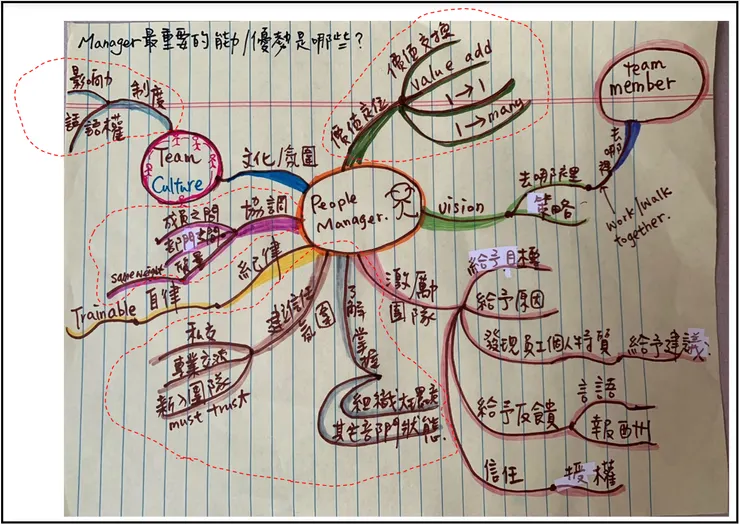 Manager 最重要的能力/優勢是哪些?
影响力
制度
話語權
Team
Culture
文化/氛圍
價值定位
價值交換
value add
1→1
1→many
People
Manager.
vision
去哪裡
策略
去哪裡
team
member
work/walk
together.
協調
成員之間
部門之間
same weight
紀律
自律
Trainable
建立信任
氛圍
私交
專業交流
新入團隊
must trust
了解掌握
組織大環境
其它部門狀態.
激勵
團隊
給予目標
給予原因
發現員工個人特質
給予建議.
給予反饋
言語
報酬
信任
授權